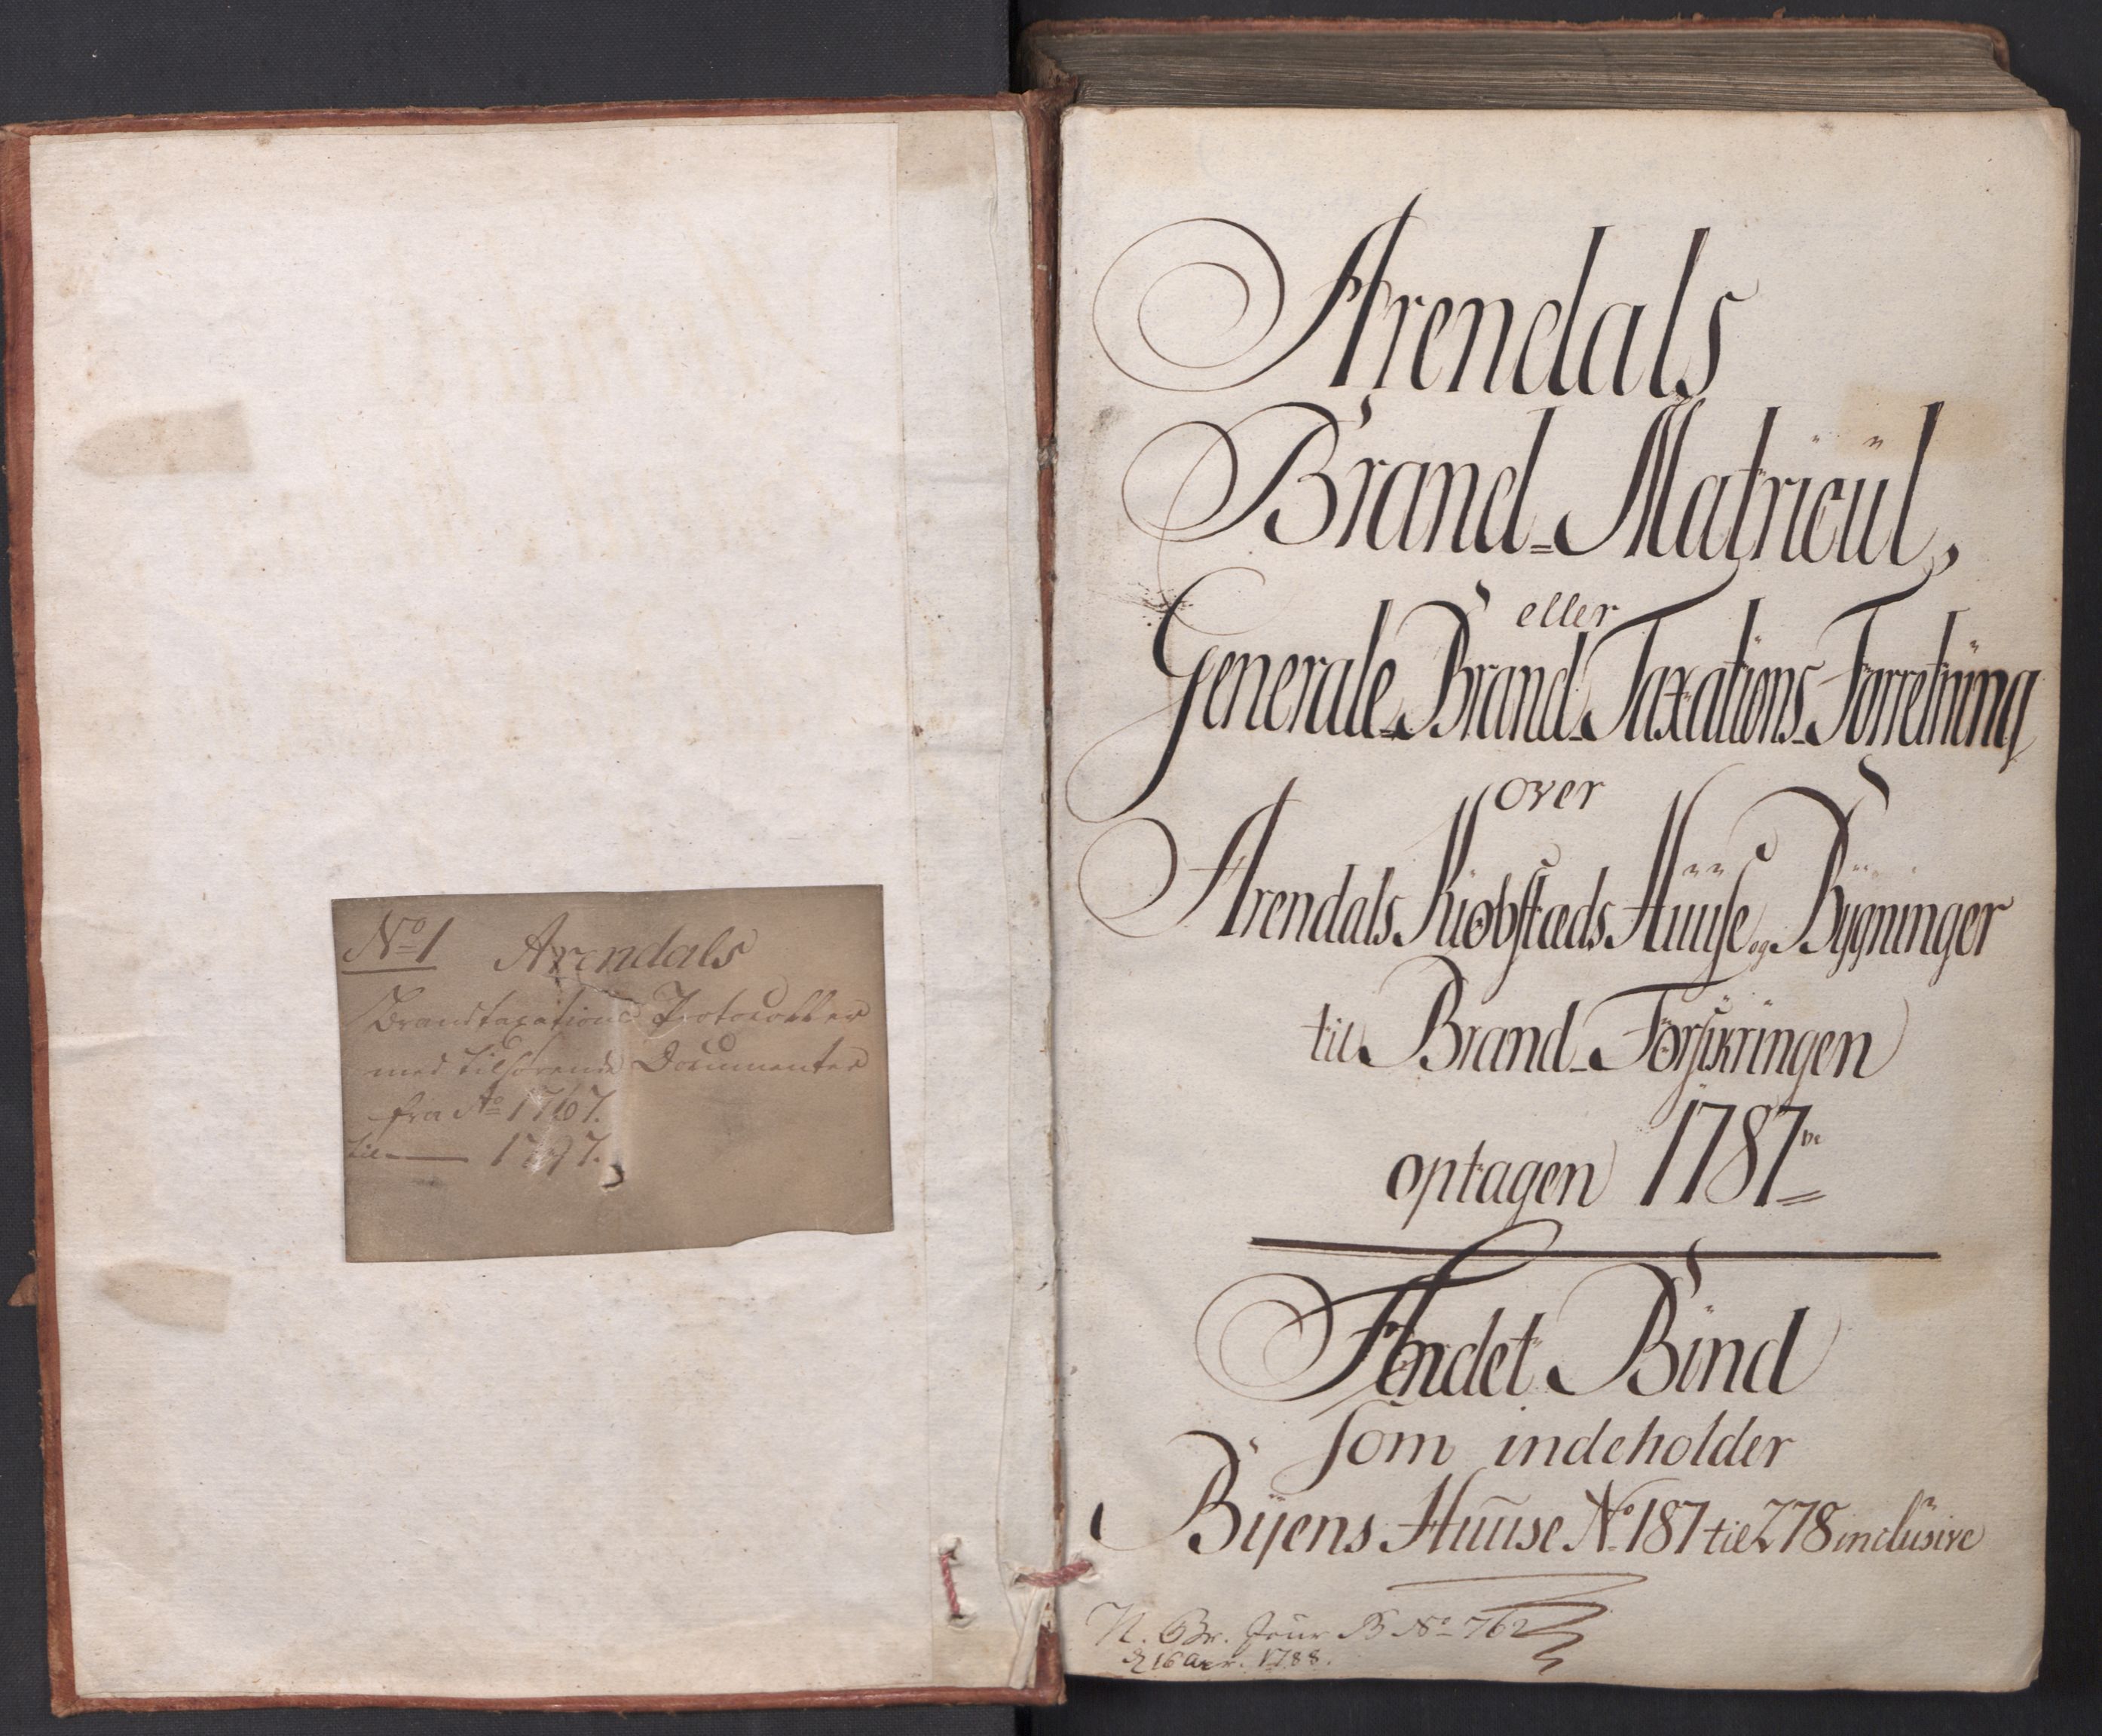 No 1 Arendals
Brandtaxations Protocoller
med tilhørende Documenter
fra Ao 1767.
til — 1797.
Arendals
Brand=Matricül,
eller
Generale=Brand=Taxations=Forretning
over
Arendals Kiøbstæds Huuse og Bygninger
til Brand=Forsikringen
optagen 1787de
Andet Bind
som indeholder
Byens Huuse No 187 til 278 inclüsive
N. Br. Jour B No 762
d 16 Apr. 1788.